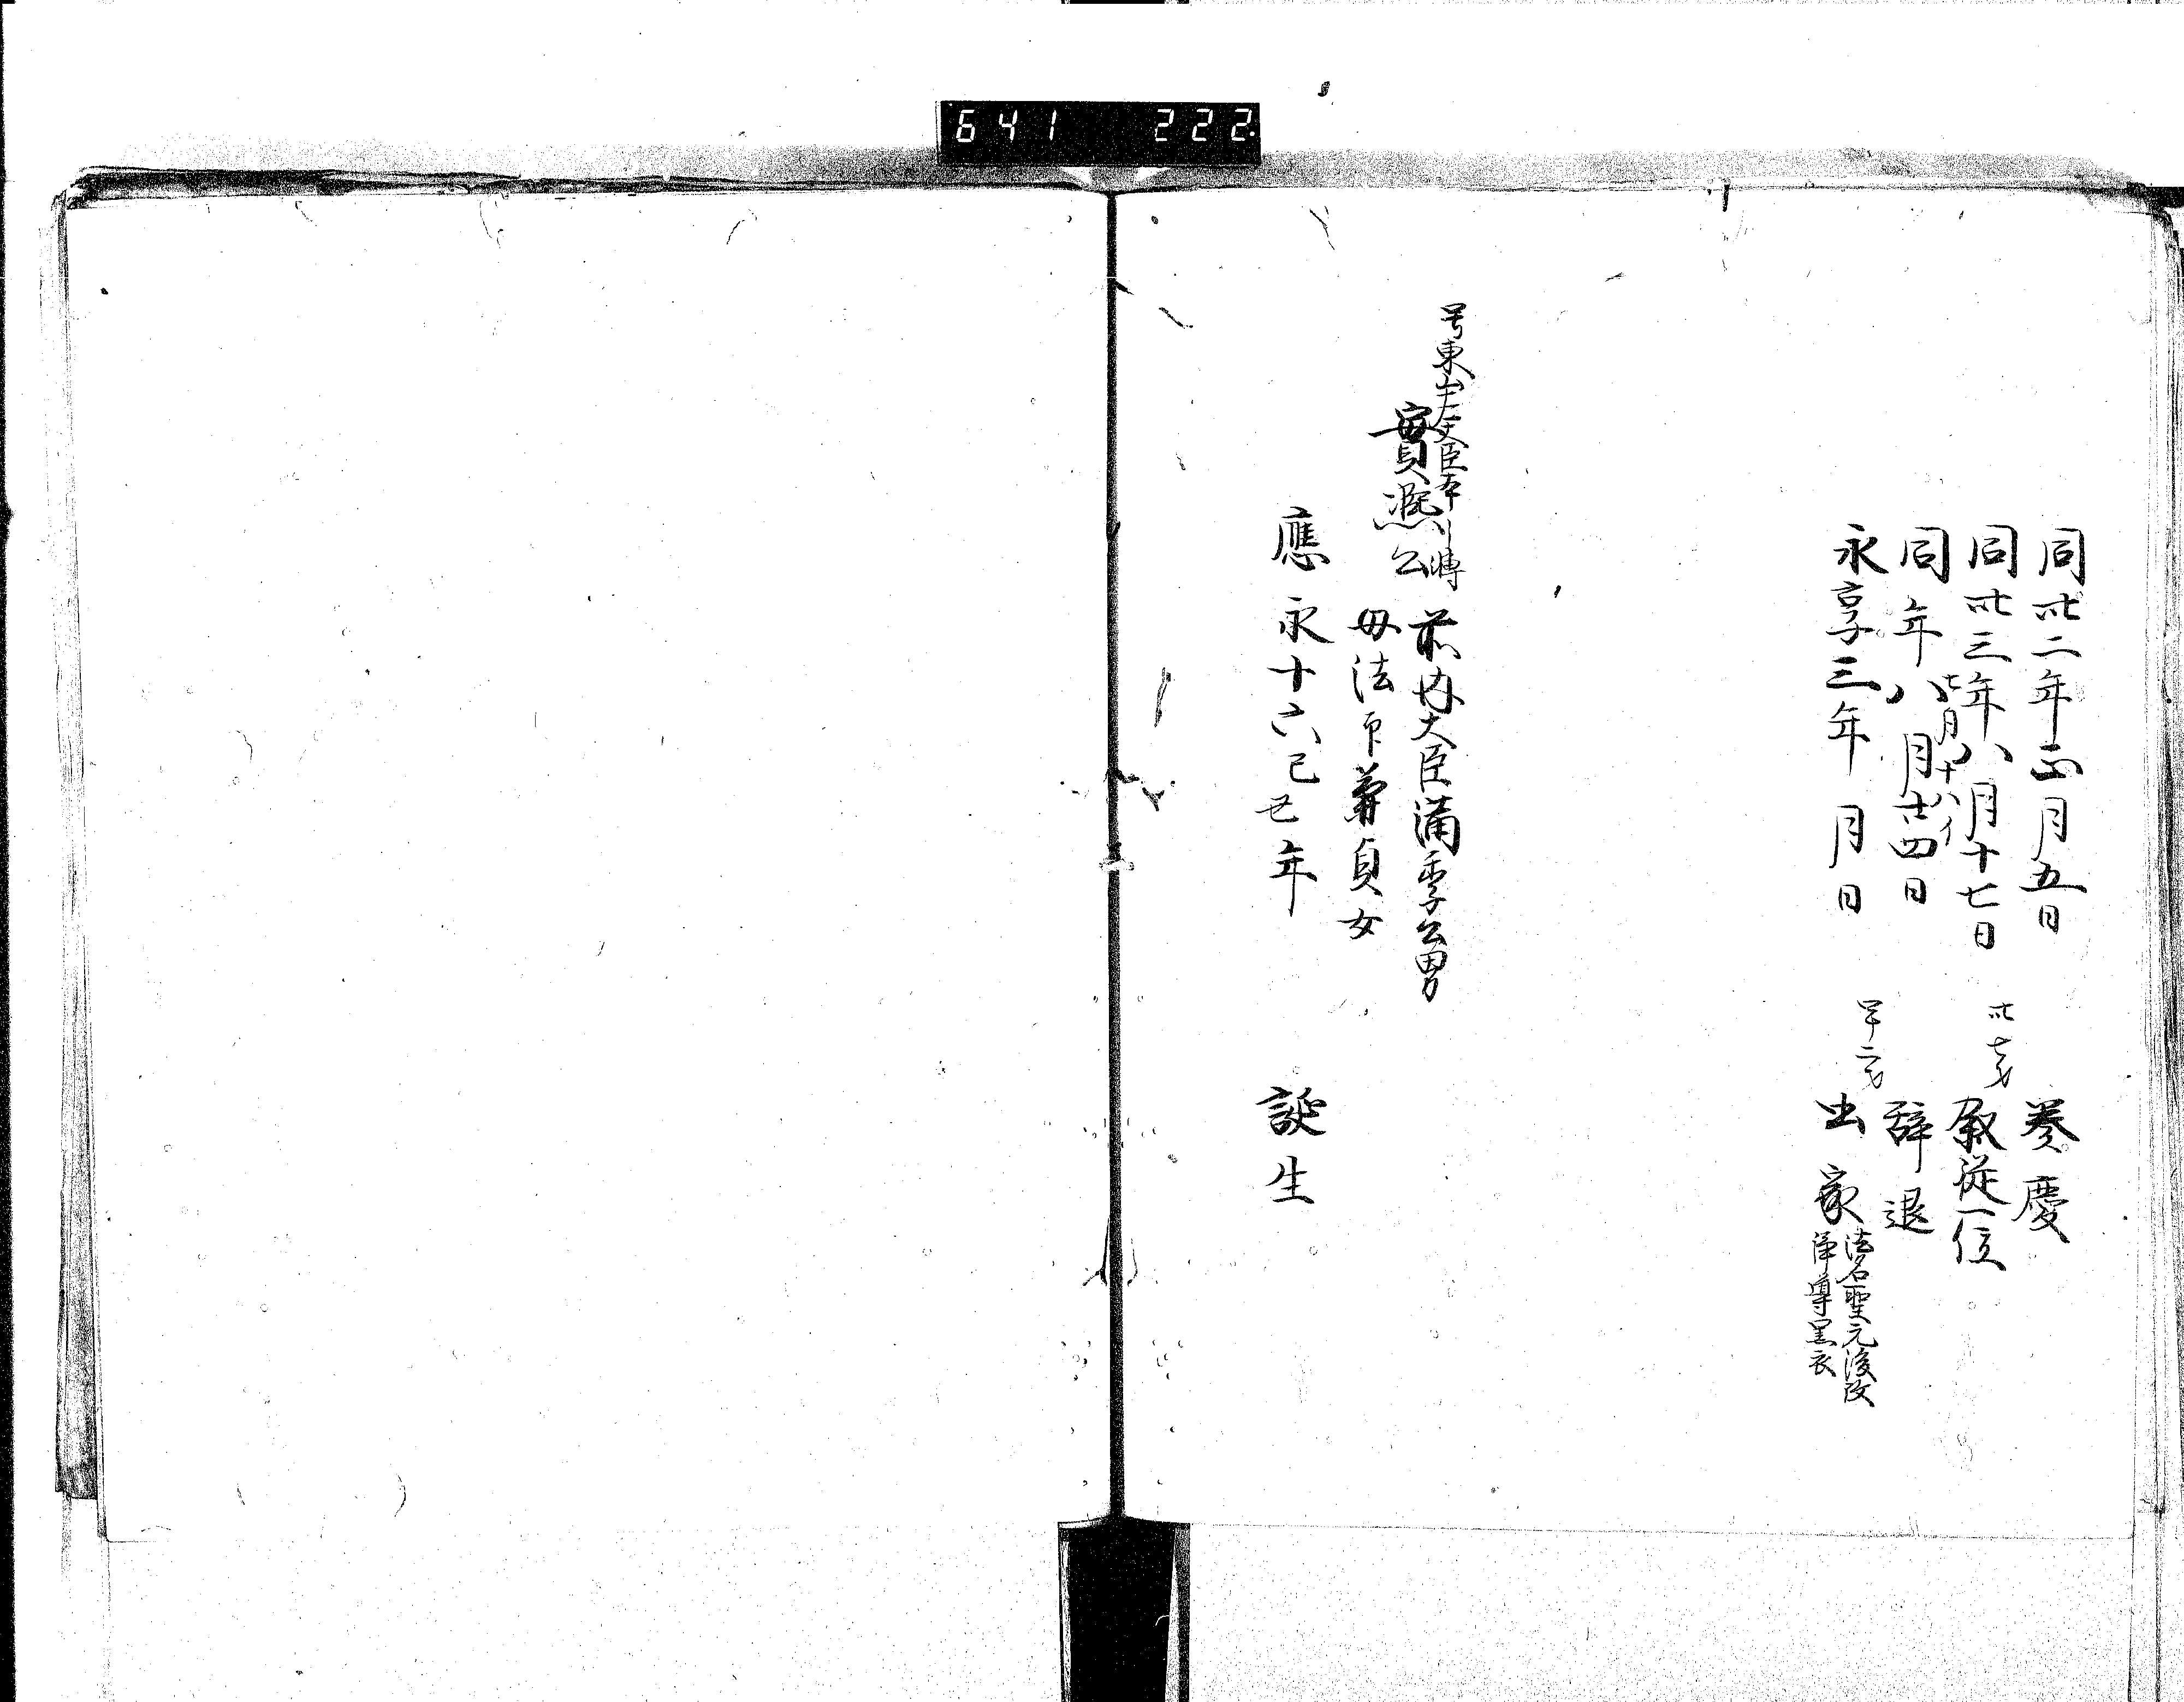 641 222
同卅二年正月五日 奏慶
同卅三年八月十七日 卅七才 叙従一位
七月十八イ
同年八月廿四日 辞退
永享三年 月 日 四十二才 出家 法名聖元後改
浄尊黒衣
号東山左大臣本
實凞公 前内大臣満季公男
母法印兼貞女
應永十六己丑年 誕生